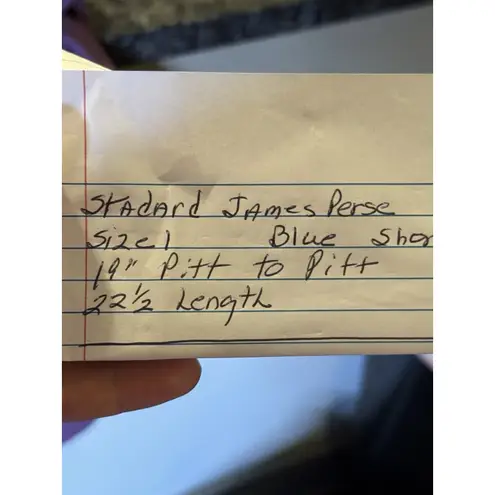 Stadard James Perse
Size 1 Blue Shor
19" Pitt to Pitt
22 1/2 Length